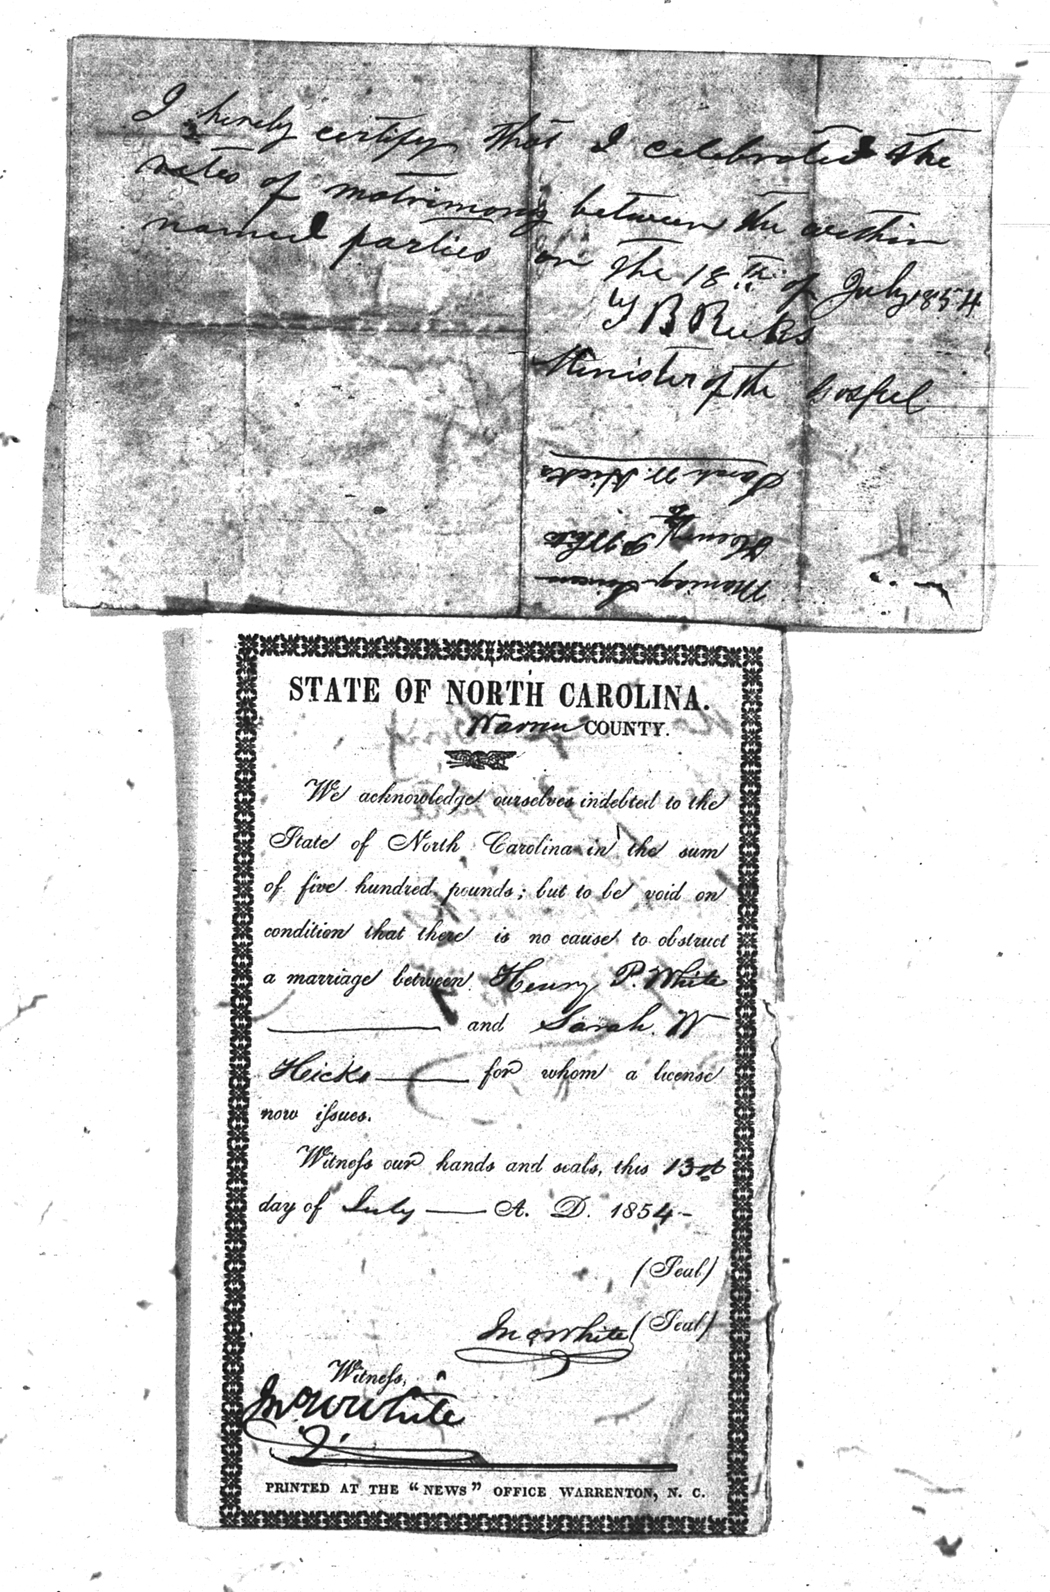 I hereby certify that I celebrated the
rites of matrimony between the within
named parties on the 18th of July 1854
B Ricks
Minister of the Gospel
Marriage License
Henry P White
to
Sarah W. Hicks
STATE OF NORTH CAROLINA.
Warren COUNTY.
We acknowledge ourselves indebted to the
State of North Carolina in the sum
of five hundred pounds; but to be void on
condition that there is no cause to obstruct
a marriage between Henry P. White
and Sarah. W
Hicks for whom a license
now issues.
Witness our hands and seals, this 13st
day of July A. D. 1854-
(Seal)
White (Seal)
Witness,
Jno W White
PRINTED AT THE "NEWS" OFFICE WARRENTON, N. C.